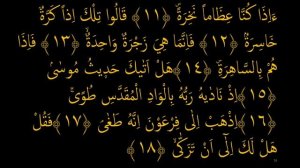 ءَاِذَا كُنَّا عِظَامًا نَخِرَةً ﴿١١﴾ قَالُوا تِلْكَ اِذًا كَرَّةٌ
خَاسِرَةٌ ﴿١٢﴾ فَاِنَّمَا هِيَ زَجْرَةٌ وَاحِدَةٌ ﴿١٣﴾ فَاِذَا
هُمْ بِالسَّاهِرَةِ ﴿١٤﴾ هَلْ اَتٰيكَ حَدِيثُ مُوسٰى
﴿١٥﴾ اِذْ نَادٰيهُ رَبُّهُ بِالْوَادِ الْمُقَدَّسِ طُوًى
﴿١٦﴾ اِذْهَبْ اِلٰى فِرْعَوْنَ اِنَّهُ طَغٰى ﴿١٧﴾ فَقُلْ
هَلْ لَكَ اِلٰٓى اَنْ تَزَكّٰى ﴿١٨﴾